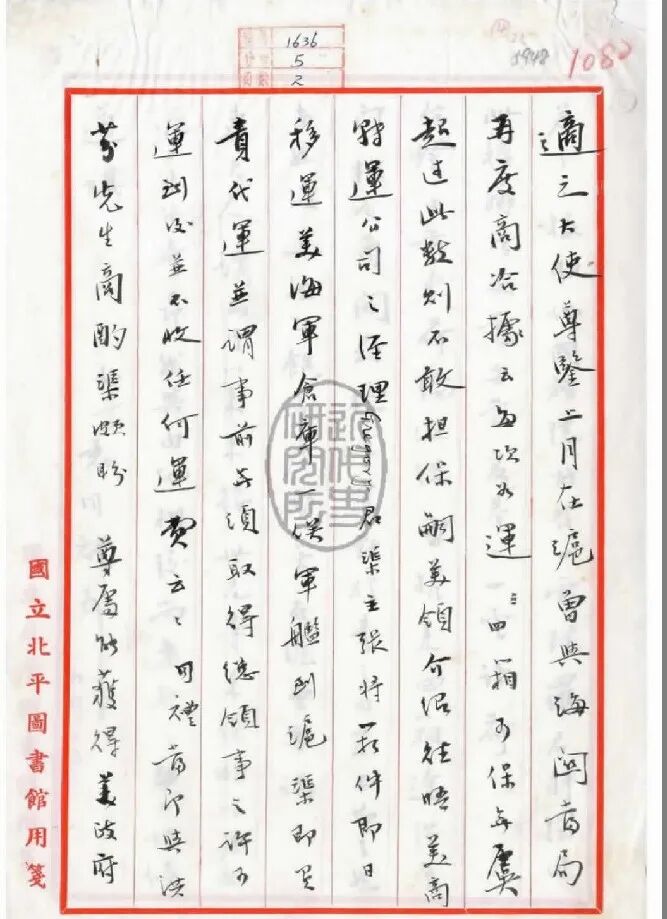 1636
5
2
5948
1080
適之大使尊鑒上月在滬曾與海關當局
再度商洽據云每次如運二三四箱可保無虞
超过此數則不敢担保嗣美領介紹往晤美商
轉運公司之經理 君渠主張將箱件即日
移運美海軍倉庫一俟軍艦到滬渠即負
責代運並謂事前無須取得總領事之許可
運到後並不收任何運費云云 同禮當即與洪
芬先生商酌渠頗盼 尊處能獲得美政府
國立北平圖書館用箋